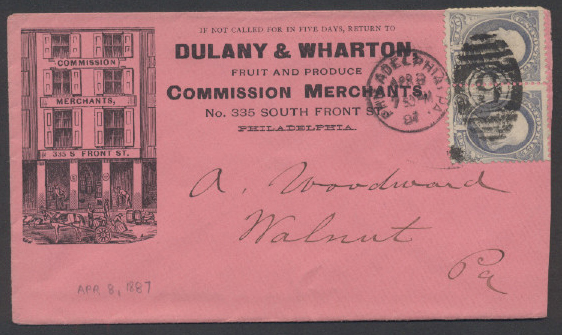 IF NOT CALLED FOR IN FIVE DAYS, RETURN TO
DULANY & WHARTON,
FRUIT AND PRODUCE
COMMISSION MERCHANTS,
No. 335 SOUTH FRONT S
PHILADELPHIA.
COMMISSION
MERCHANTS,
335 S FRONT ST.
PHILADELPHIA, PA.
APR 8
87
A. Woodward
Walnut
Pa
APR 8, 1887